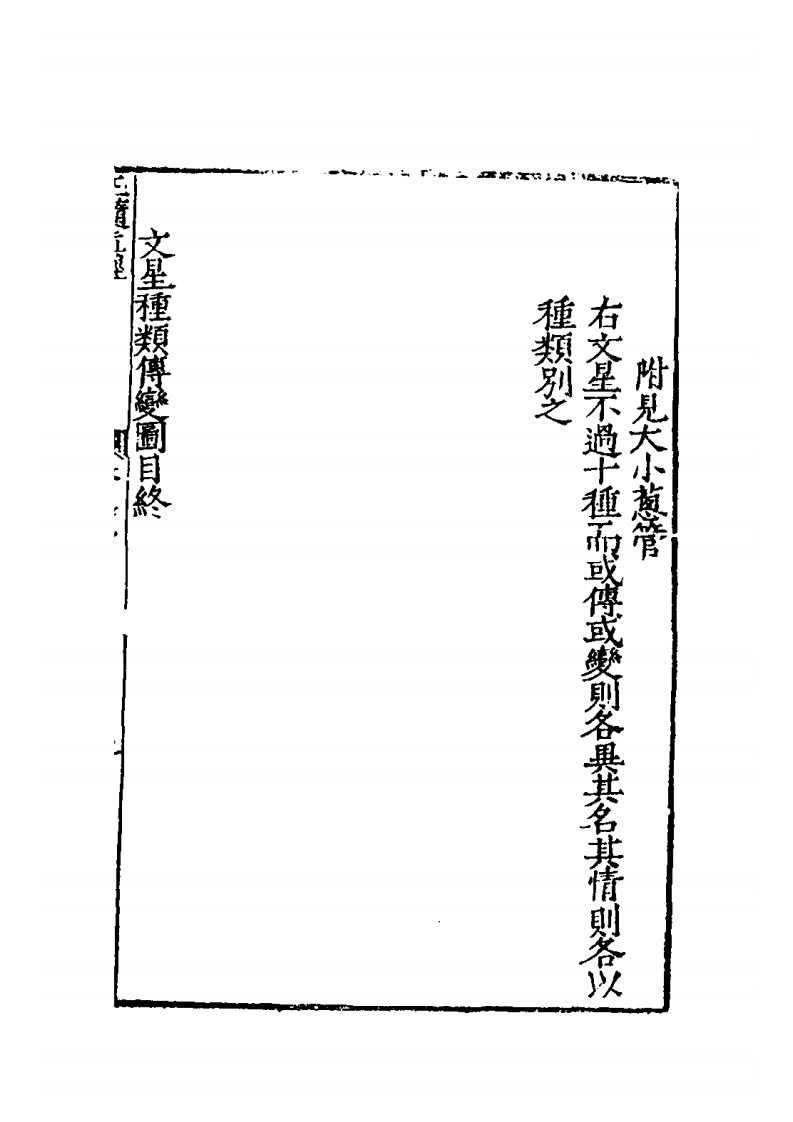 附見大小蔥管
右文星不過十種而或傳或變則各異其名其情則各以
種類別之
文星種類傳變圖目終